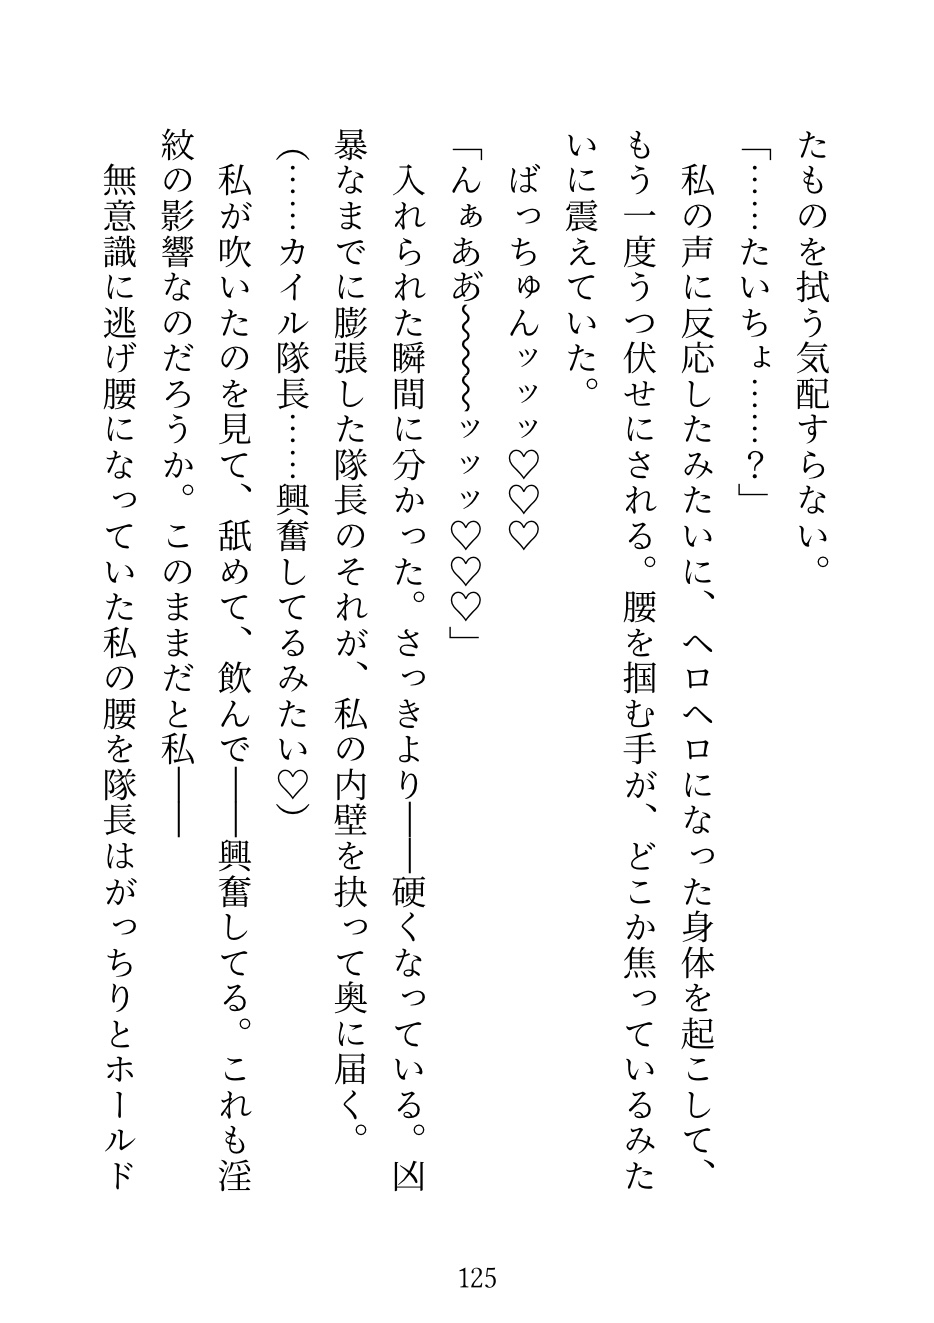 たものを拭う気配すらない。
「……たいちょ……？」
　私の声に反応したみたいに、ヘロヘロになった身体を起こして、
もう一度うつ伏せにされる。腰を掴む手が、どこか焦っているみた
いに震えていた。
　ばっちゅんッッッ♡♡♡
「んぁああ゛〜〜〜〜ッッッ♡♡♡」
　入れられた瞬間に分かった。さっきより――硬くなっている。凶
暴なまでに膨張した隊長のそれが、私の内壁を抉って奥に届く。
（……カイル隊長……興奮してるみたい♡）
　私が吹いたのを見て、舐めて、飲んで――興奮してる。これも淫
紋の影響なのだろうか。このままだと私――
　無意識に逃げ腰になっていた私の腰を隊長はがっちりとホールド
125